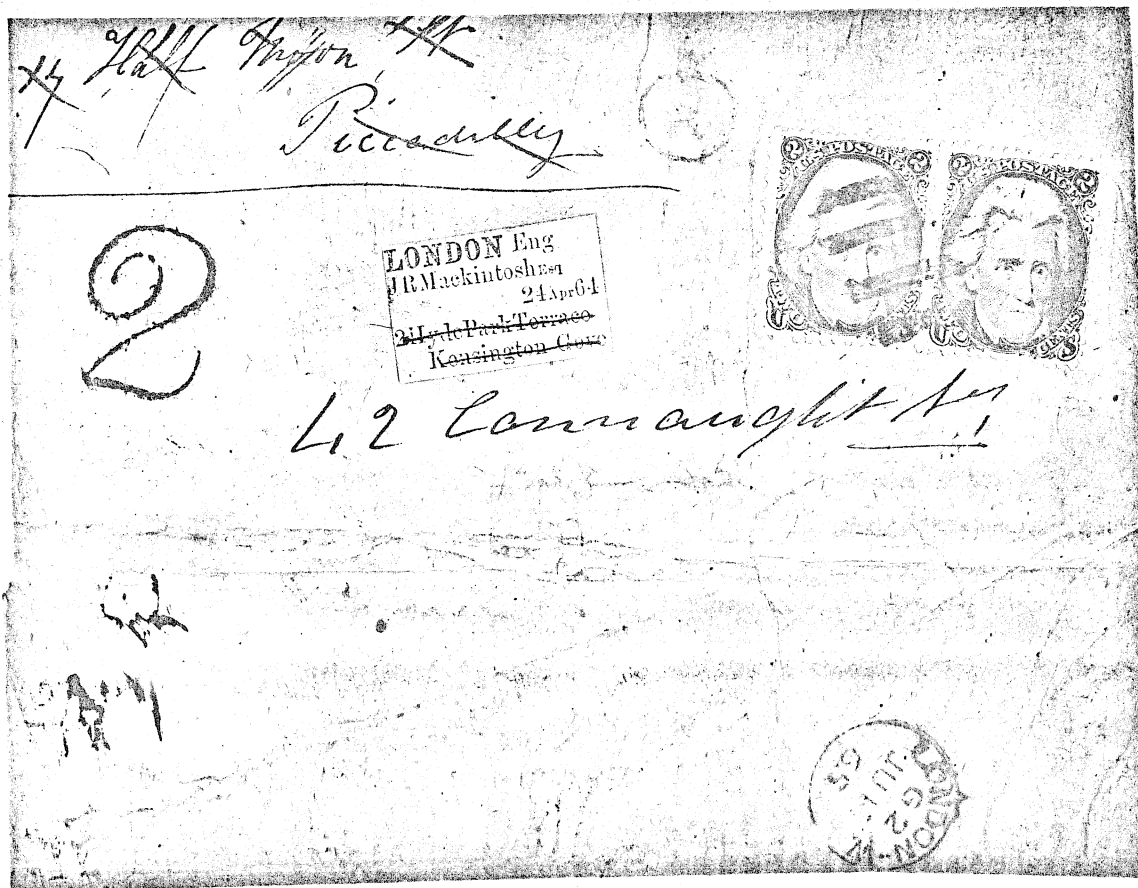 17 Half Moon Str
Piccadilly
2
LONDON Eng
JRMackintosh Esq
24 Apr 64
2 Hyde Park Terrace
Kensington Gore
2 POSTAGE 2
U S
2 POSTAGE 2
U CENTS S
42 Connaught Sqr
LONDON-W
G2
JU 1
65